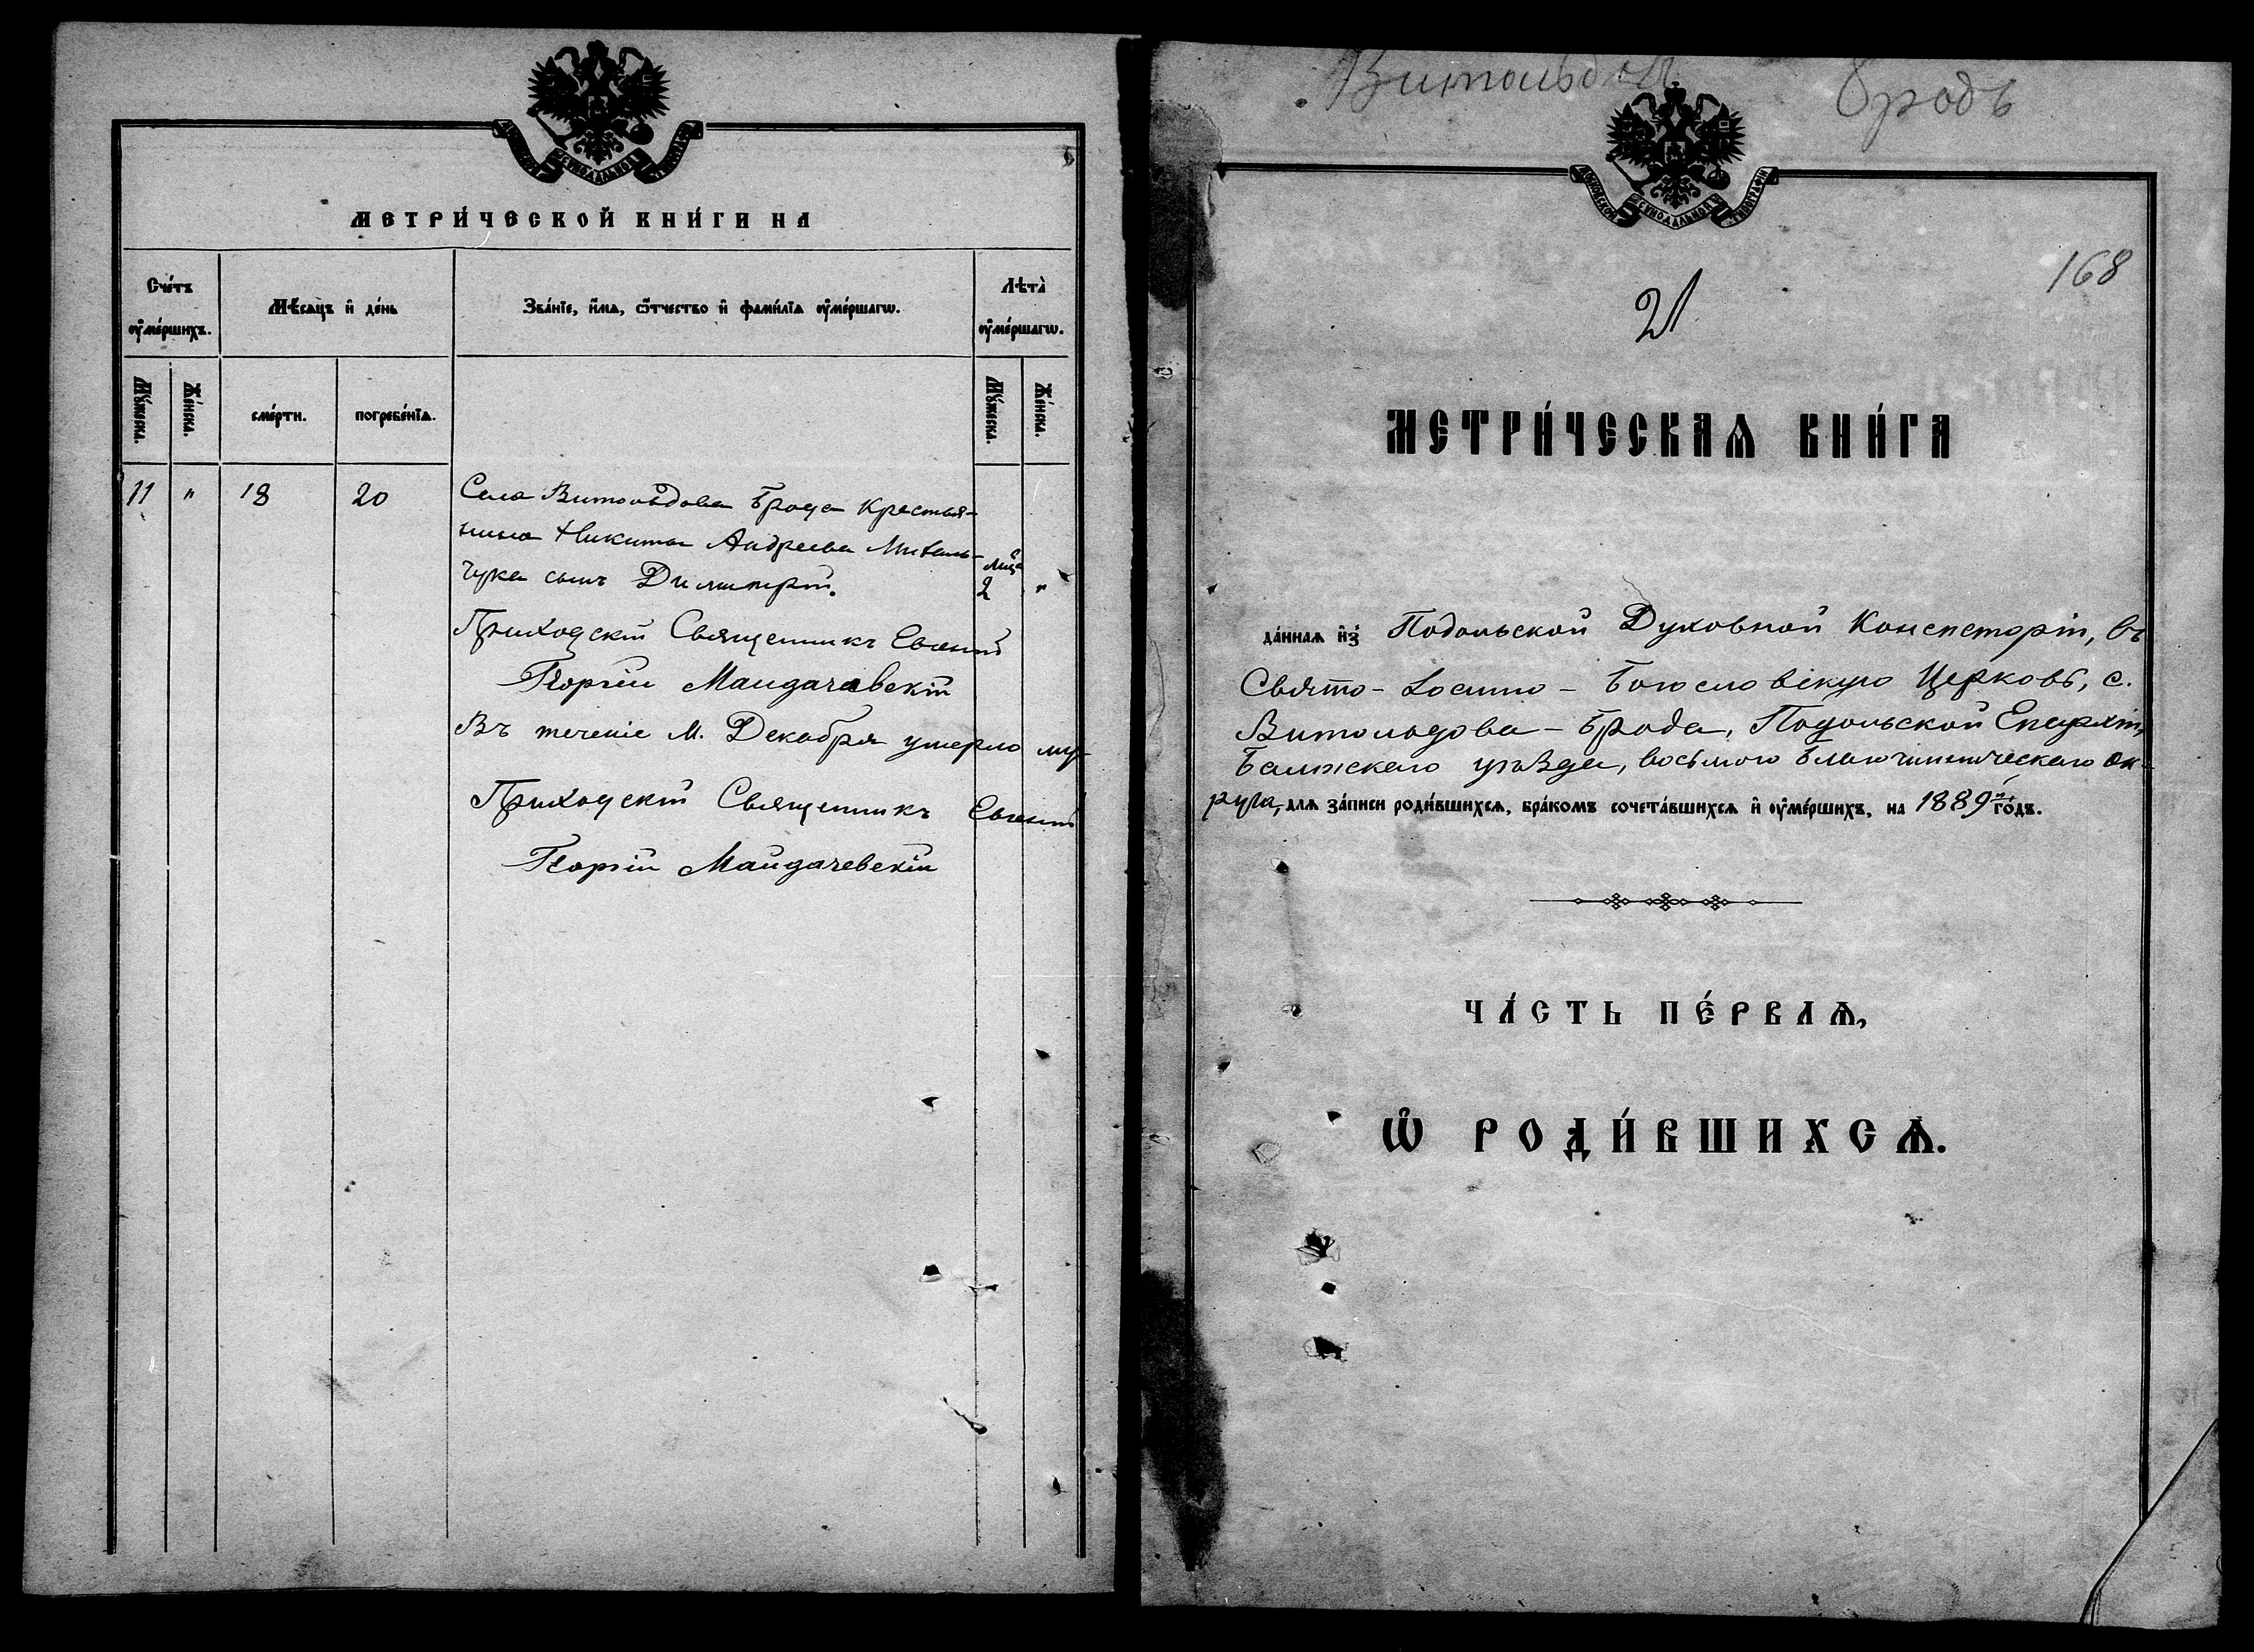 МЕТРИ́ЧЕСКОЙ КНИ́ГИ НА
Сче́тъ ᲂу҆ме́ршихъ.
Мѣ́сяцъ и҆ де́нь
Зва́нїе, и҆́мѧ, ѻ҆́тчество и҆ фами́лїѧ ᲂу҆ме́ршагѡ.
Лѣта̀ ᲂу҆ме́ршагѡ.
Мꙋ́жеска.
Же́нска.
сме́рти.
погребе́нїѧ.
Мꙋ́жеска.
Же́нска.
11 " 18 20 Села Витольдова Брода крестья-
нина Никиты Андреева Михаль- мц.
чука сынъ Димитрій. 2 "
Приходскій Священникъ Евгеній
Георгій Майдачевскій
Въ теченіе М. Декабря умерло му-
Приходскій Священникъ Евгеній
Георгій Майдачевскій
Витольдов Бродъ
МОСКОВСКОЙ СѴНОДАЛЬНОЙ ТИПОГРАФІИ
168
21
МЕТРИ́ЧЕСКАѦ КНИ́ГА
да́ннаѧ и҆з̾ Подольской Духовной Консисторіи, въ
Свято-Іоанно-Богословскую Церковь, с.
Витольдова-Брода, Подольской Епархіи,
Балтскаго уѣзда, восьмого Благочинническаго ок-
руга, длѧ за́писи роди́вшихсѧ, бра́комъ сочета́вшихсѧ и҆ ᲂу҆ме́ршихъ, на 1889й го́дъ.
ЧА́СТЬ ПЕ́РВАѦ,
Ѡ҆ РОДИ́ВШИХСѦ.